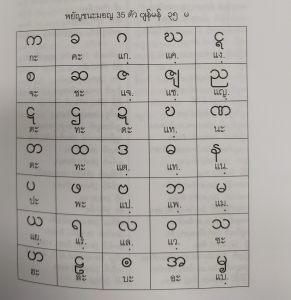 พยัญชนะมอญ 35 ตัว ဗျဉ်မန် ၃၅ မ
က ခ ဂ ဃ ၚ
กะ คะ แกฺ แคฺ แงฺ
စ ဆ ဇ ၛ ည
จะ ชะ แจฺ แชฺ แญฺ
ဋ ဌ ဍ ဎ ဏ
ตะ ทะ ดะ แทฺ นะ
တ ထ ဒ ဓ န
ตะ ทะ แตฺ แทฺ แนฺ
ပ ဖ ဗ ဘ မ
ปะ พะ แปฺ แพฺ แมฺ
ယ ရ လ ဝ သ
แยฺ แรฺ แลฺ แวฺ ซะ
ဟ ဠ ၜ အ ၝ
ฮะ ละ บะ อะ แบฺ